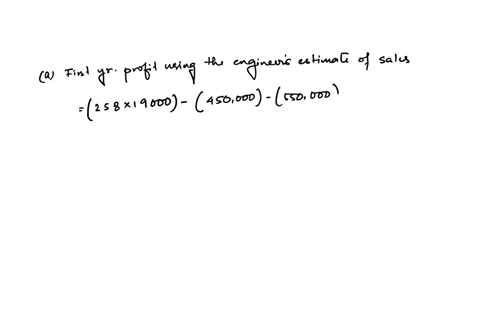 (a) First yr. profit using the engineer's estimate of sales
= (258 × 19000) - (450,000) - (550,000)